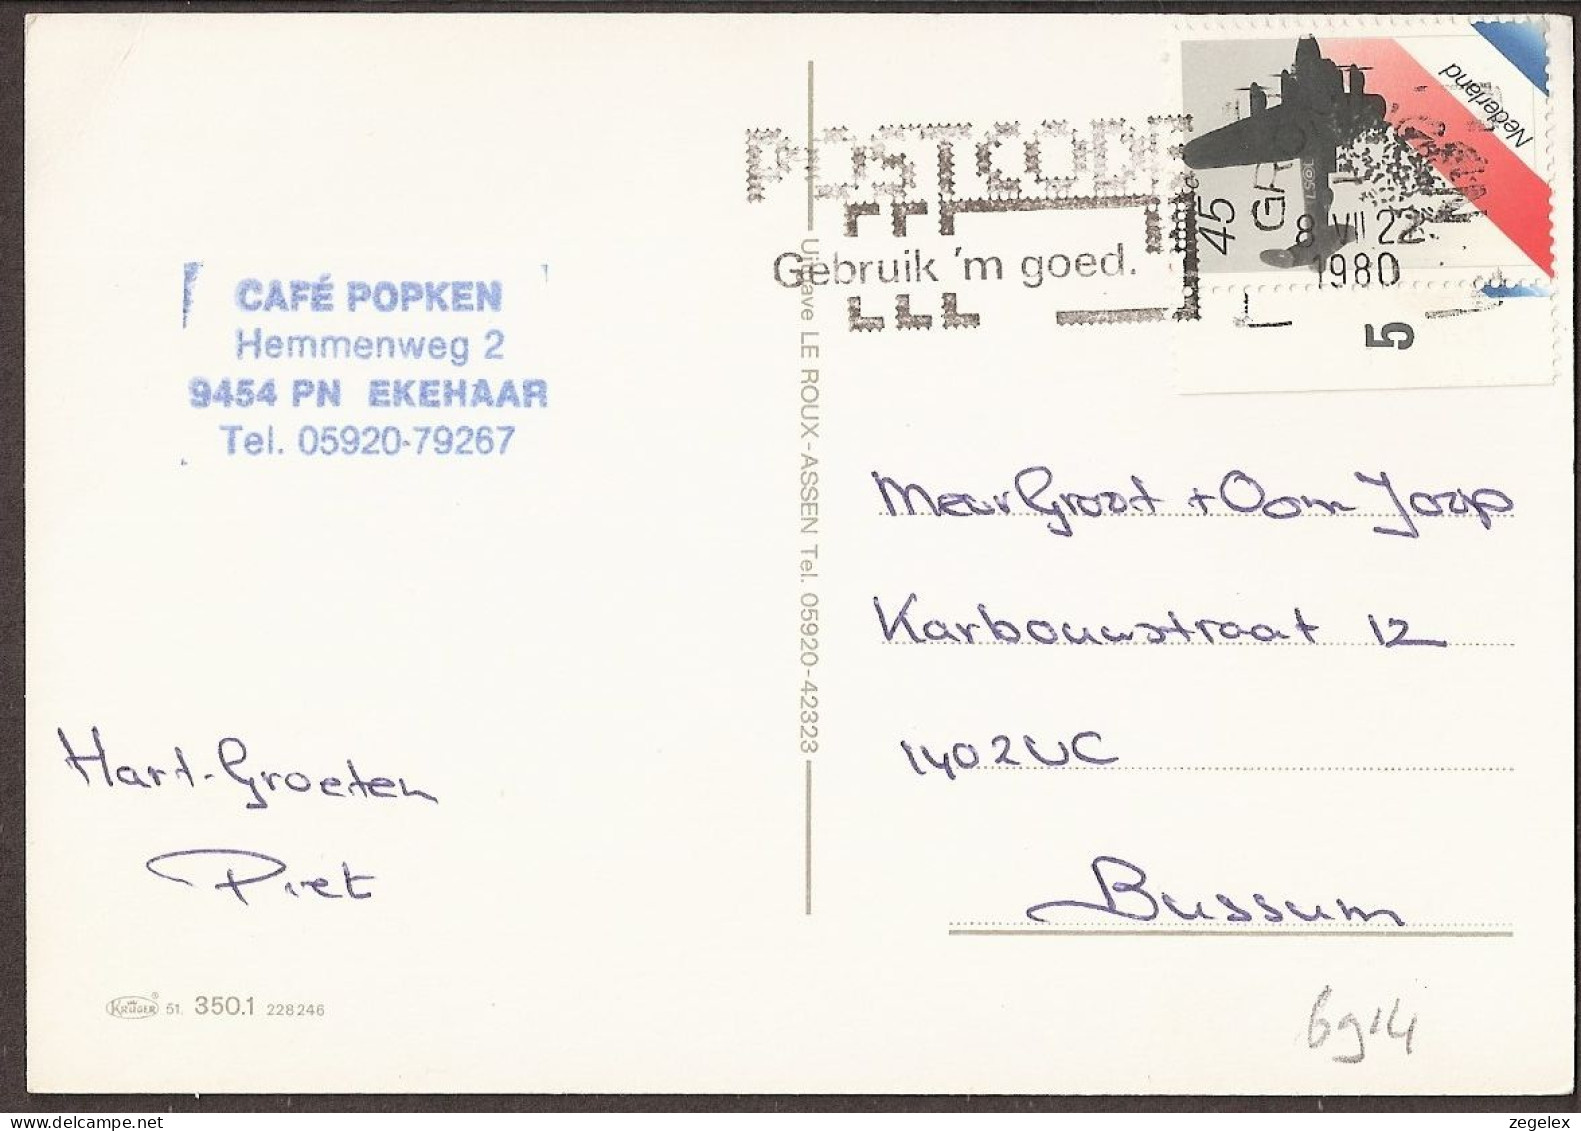 POSTCODE
Gebruik 'm goed.
Nederland
45
8 VII 22
1980
5
CAFÉ POPKEN
Hemmenweg 2
9454 PN EKEHAAR
Tel. 05920-79267
Uitgave LE ROUX - ASSEN Tel. 05920-42323
Groot + Oom Joop
Karbouwstraat 12
1402 VC
Bussum
Hart-Groeten
Piet
KRÜGER 51. 350.1 228246
zegelex